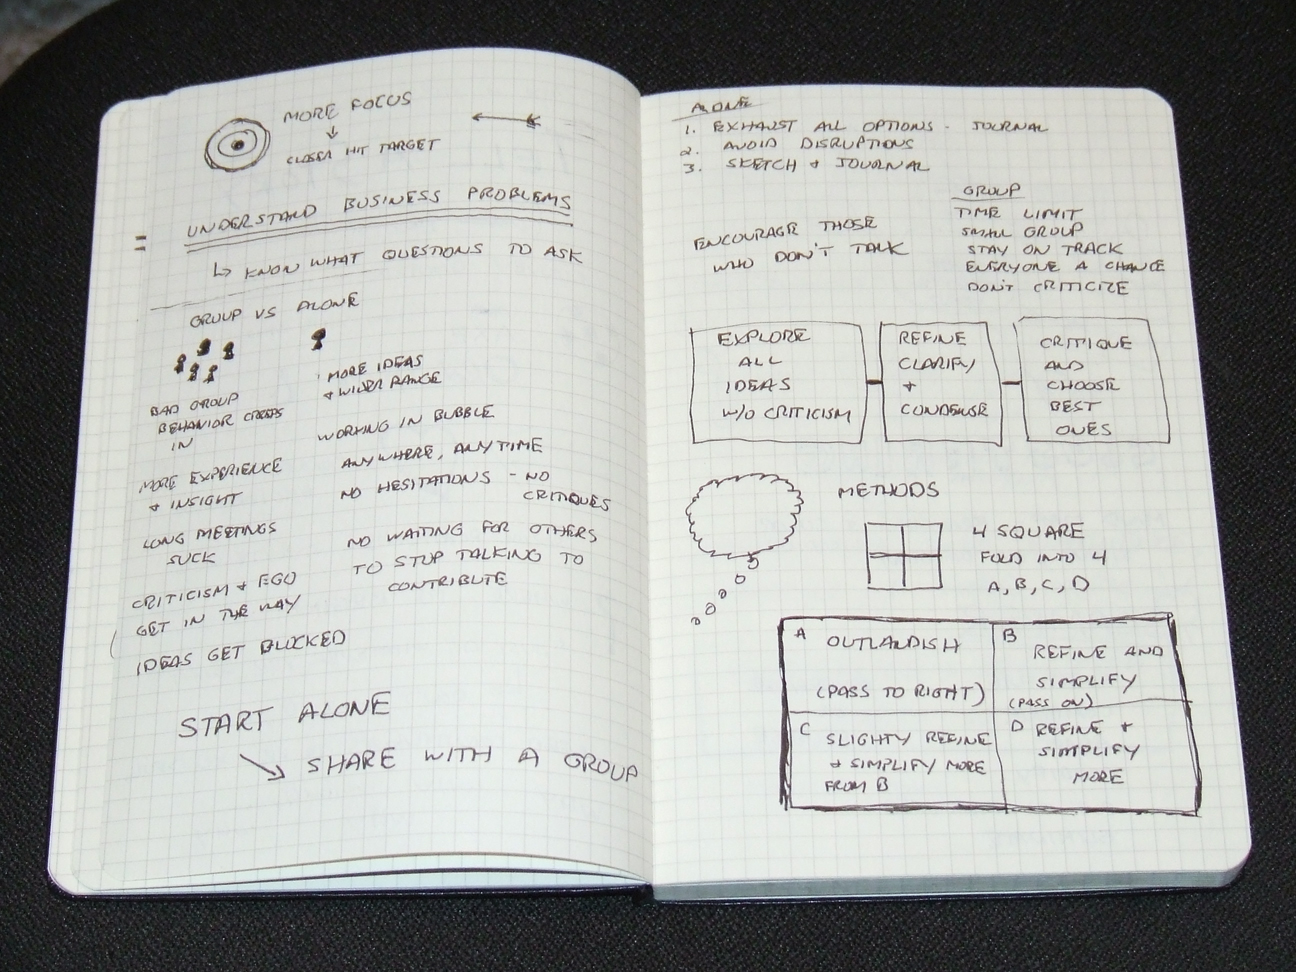 MORE FOCUS
CLOSER HIT TARGET
UNDERSTAND BUSINESS PROBLEMS
KNOW WHAT QUESTIONS TO ASK
GROUP VS ALONE
BAD GROUP
BEHAVIOR CREEPS
IN
MORE EXPERIENCE
+ INSIGHT
LONG MEETINGS
SUCK
CRITICISM + EGO
GET IN THE WAY
IDEAS GET BLOCKED
MORE IDEAS
+ WIDER RANGE
WORKING IN BUBBLE
ANYWHERE, ANYTIME
NO HESITATIONS - NO
CRITIQUES
NO WAITING FOR OTHERS
TO STOP TALKING TO
CONTRIBUTE
START ALONE
SHARE WITH A GROUP
ALONE
1. EXHAUST ALL OPTIONS - JOURNAL
2. AVOID DISRUPTIONS
3. SKETCH + JOURNAL
ENCOURAGE THOSE
WHO DON'T TALK
GROUP
TIME LIMIT
SMALL GROUP
STAY ON TRACK
EVERYONE A CHANCE
DON'T CRITICIZE
EXPLORE
ALL
IDEAS
W/O CRITICISM
REFINE
CLARIFY
+
CONDENSE
CRITIQUE
AND
CHOOSE
BEST
ONES
METHODS
4 SQUARE
FOLD INTO 4
A, B, C, D
A OUTLANDISH
(PASS TO RIGHT)
B
REFINE AND
SIMPLIFY
(PASS ON)
C SLIGHTY REFINE
+ SIMPLIFY MORE
FROM B
D REFINE +
SIMPLIFY
MORE